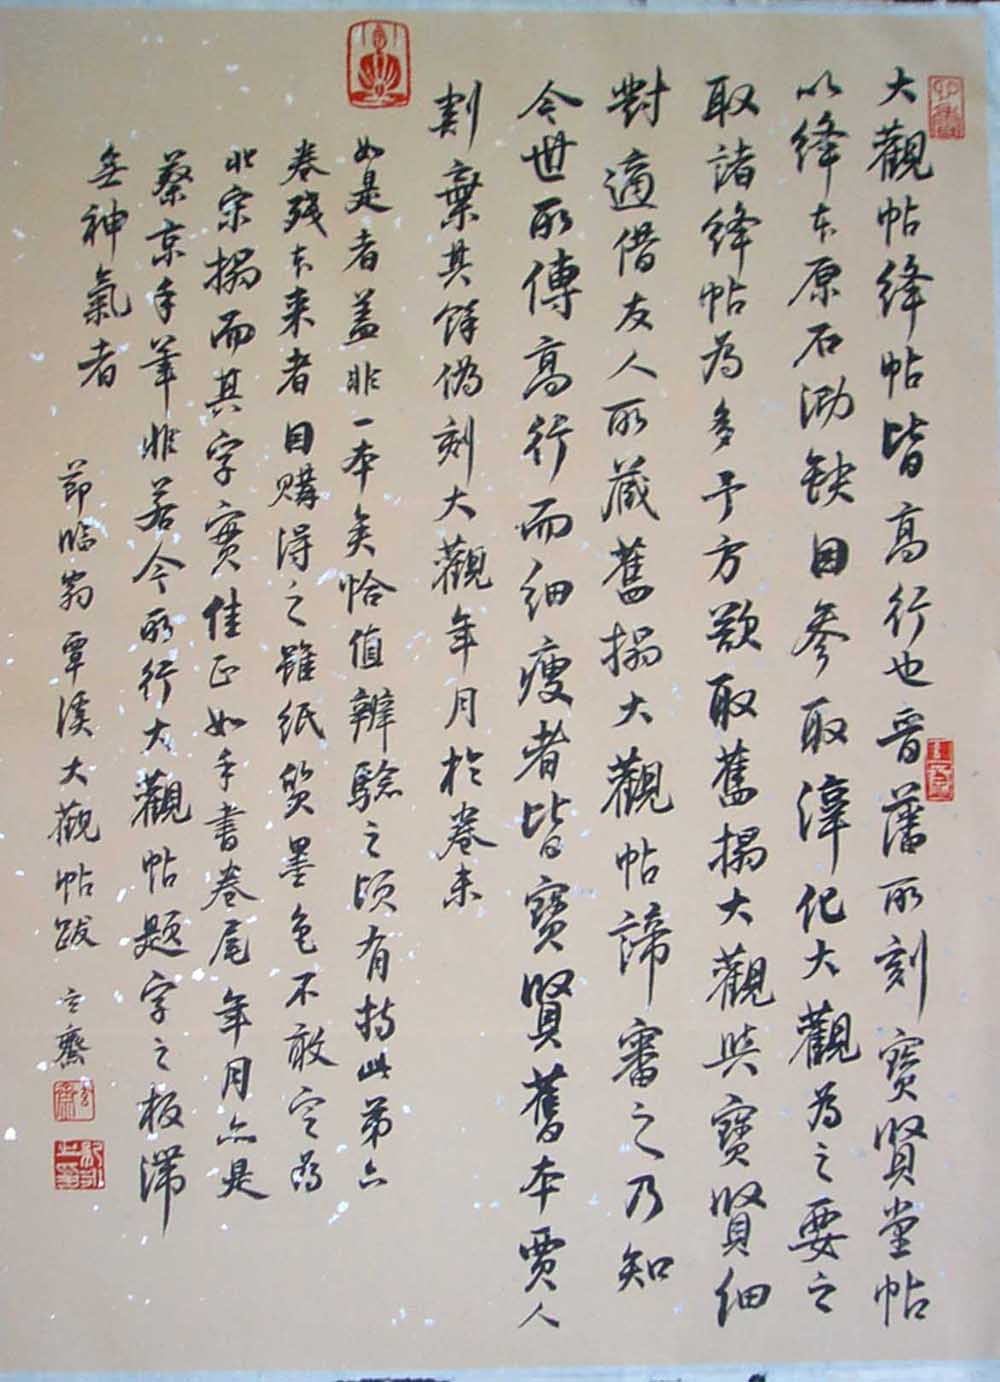 大觀帖絳帖皆高行也晉藩所刻寶賢堂帖
以絳本原石泐缺因參取淳化大觀為之要之
取諸絳帖為多予方欲取舊搨大觀與寶賢細
對適借友人所藏舊搨大觀帖諦審之乃知
今世所傳高行而細瘦者皆寶賢舊本賈人
割棄其餘偽刻大觀年月於卷末
如是者蓋非一本矣恰值辧驗之頃有持此第六
卷殘本来者因購得之雖紙質墨色不敢定為
北宋搨而其字實佳正如手書卷尾年月亦是
蔡京手筆非若今所行大觀帖題字之板滯
無神氣者
節臨翁覃溪大觀帖跋
玄齋